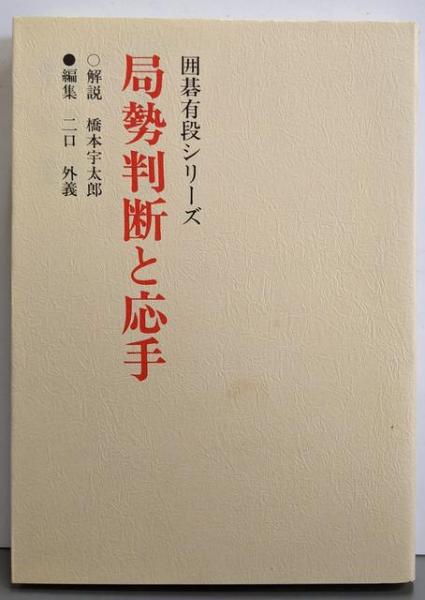 囲碁有段シリーズ
局勢判断と応手
○解説 橋本宇太郎
●編集 二口 外義